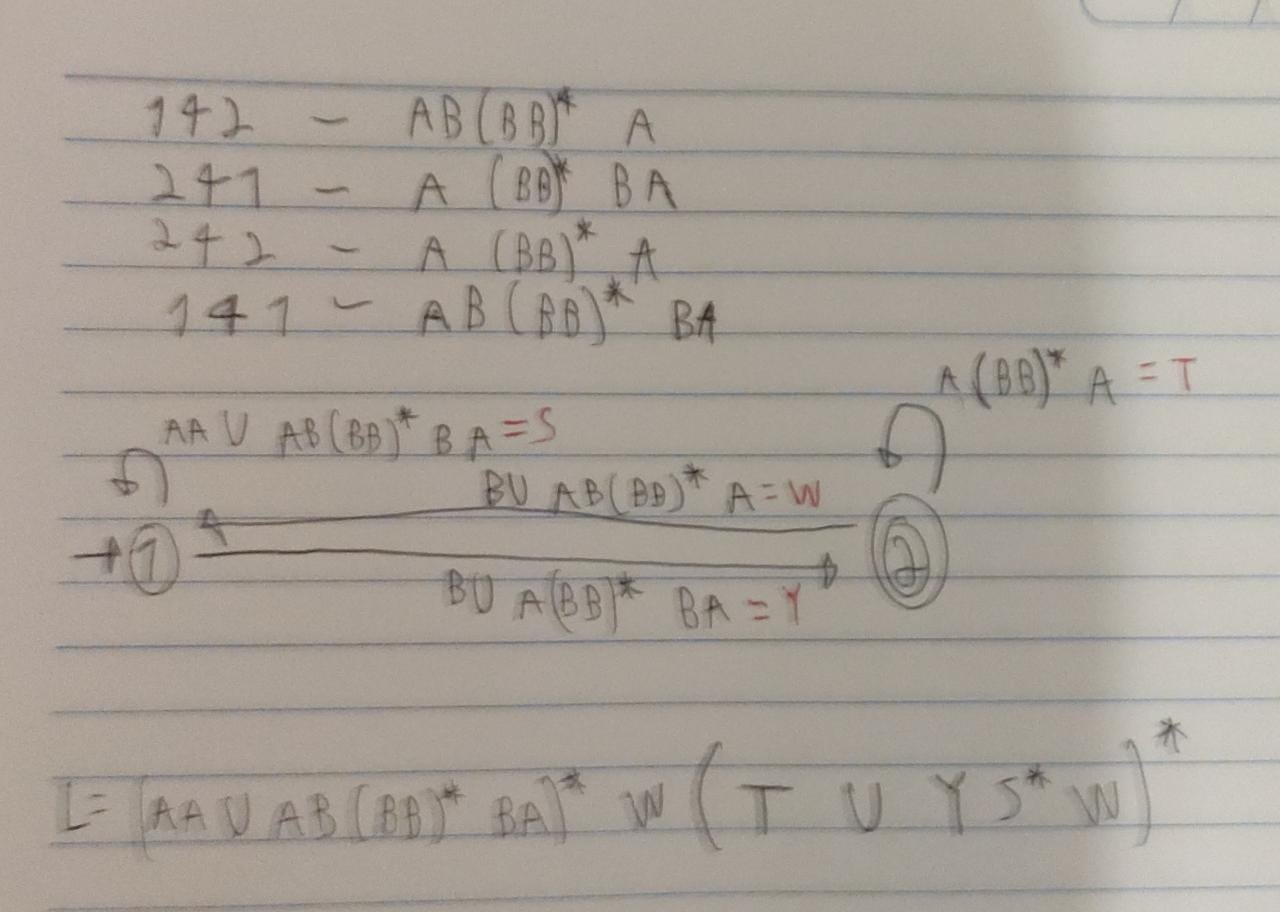 142 - AB(BB)* A
241 - A (BB)* BA
242 - A (BB)* A
141 - AB(BB)* BA
A(BB)* A = T
AA U AB(BB)* BA = S
BU AB(BB)* A = W
→ 1 2
BU A(BB)* BA = Y
L = [AA U AB(BB)* BA]* W (T U Y S* W)*